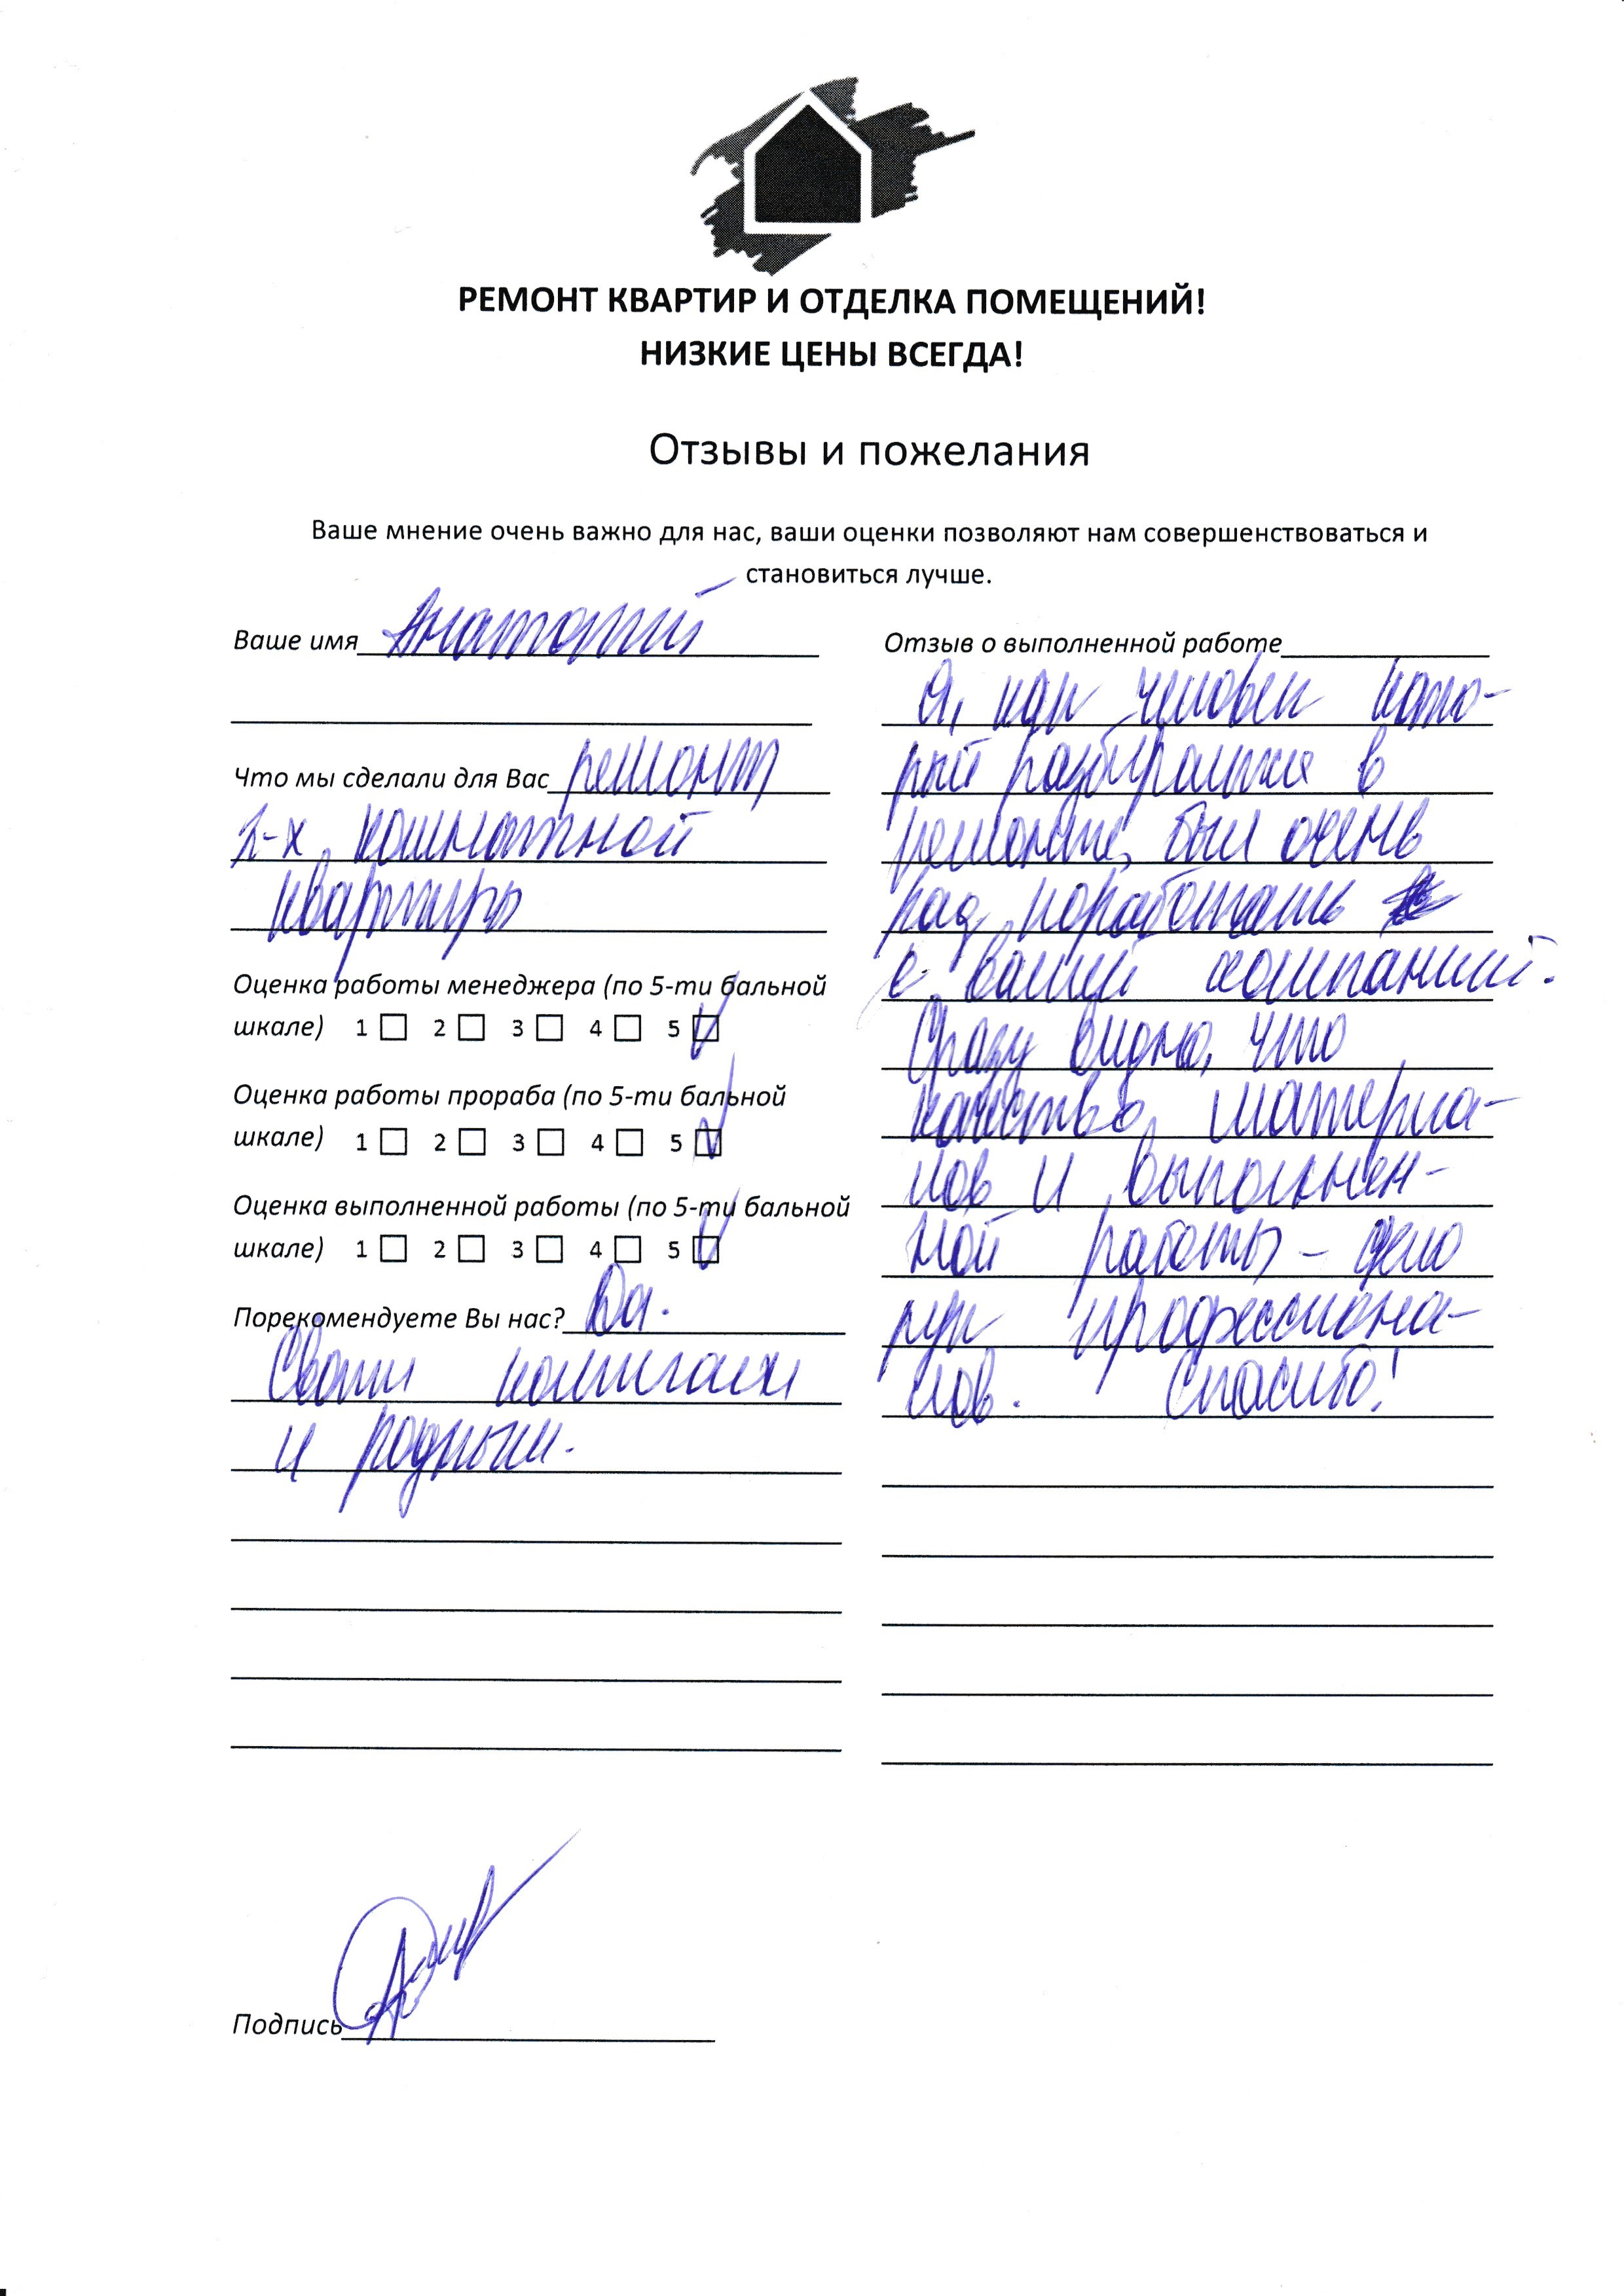 РЕМОНТ КВАРТИР И ОТДЕЛКА ПОМЕЩЕНИЙ!
НИЗКИЕ ЦЕНЫ ВСЕГДА!
Отзывы и пожелания
Ваше мнение очень важно для нас, ваши оценки позволяют нам совершенствоваться и
становиться лучше.
Ваше имя Анатолий
Что мы сделали для Вас ремонт
2-х комнатной
квартиры
Оценка работы менеджера (по 5-ти бальной
шкале) 1 ☐ 2 ☐ 3 ☐ 4 ☐ 5 ☑
Оценка работы прораба (по 5-ти бальной
шкале) 1 ☐ 2 ☐ 3 ☐ 4 ☐ 5 ☑
Оценка выполненной работы (по 5-ти бальной
шкале) 1 ☐ 2 ☐ 3 ☐ 4 ☐ 5 ☑
Порекомендуете Вы нас? Да.
Своим
и родным.
Подпись
Отзыв о выполненной работе
Я, как человек кото-
рый разбирается в
ремонте, был очень
рад поработать
с вашей компанией.
Сразу видно, что
качество материа-
лов и выполнен-
ной работы – дело
рук профессиона-
лов. Спасибо!